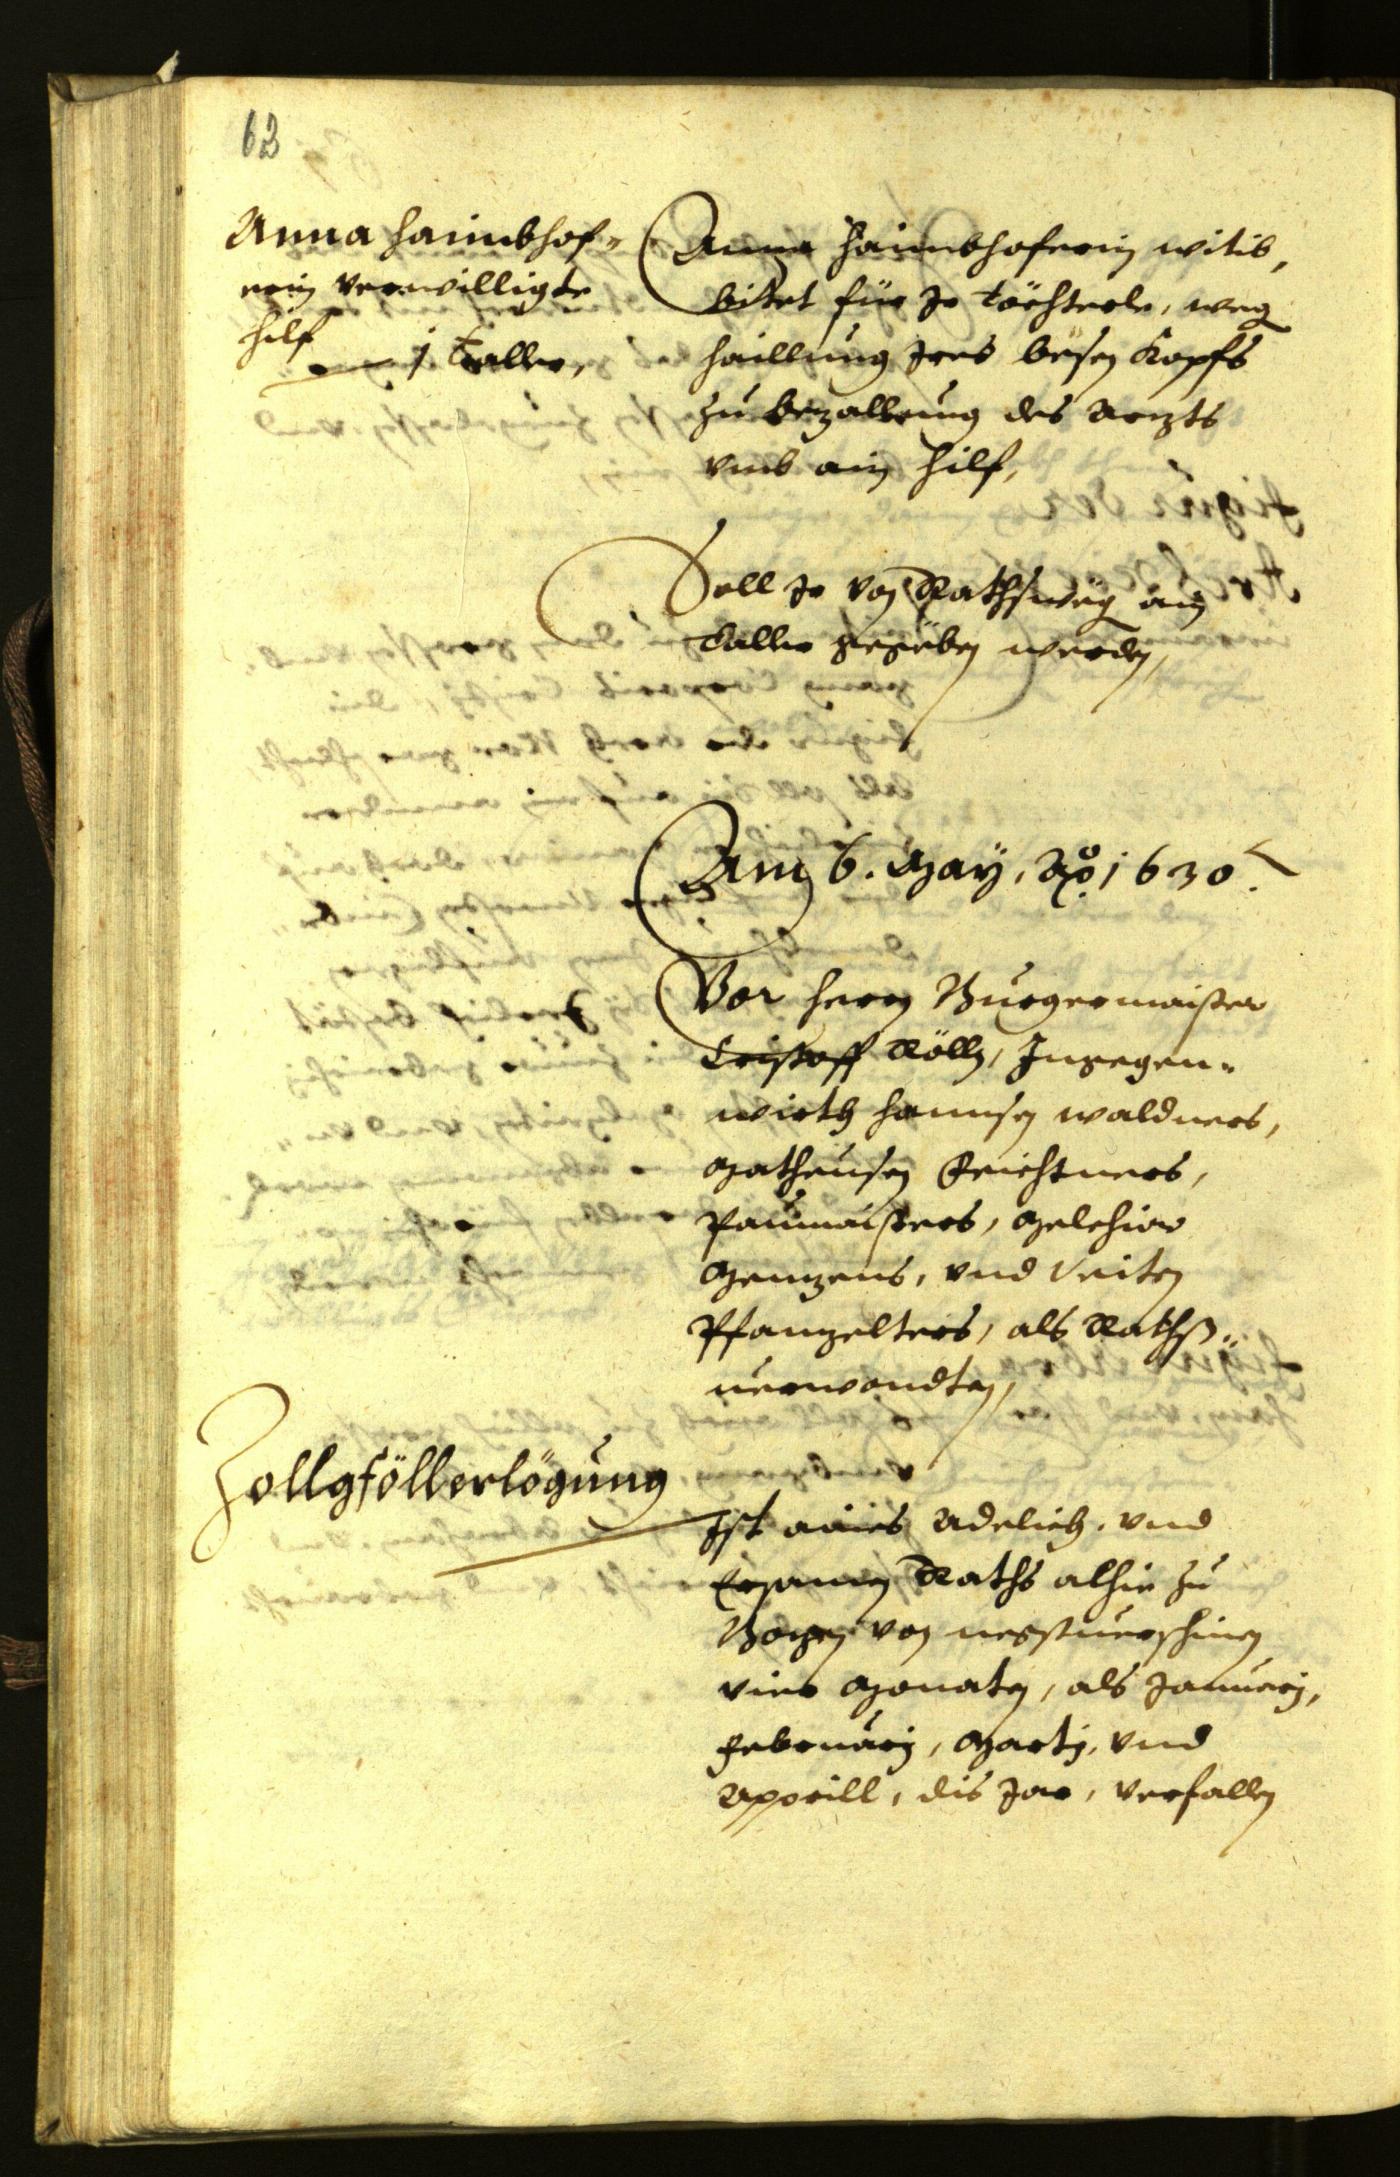 62
Anna Haimbhof-
erin verwilligte
hilf
1 Taller,
Anna Haimbhoferin witib,
bitet für Ir Töchterle, weg
haillung Ires bösen Kopfs
zu bezallung des Arzts
umb ain Hilf,
Soll Ir von Rathsweg ain
Taller gegeben werden,
Am 6. May, Ao 1630.
Vor Herrn Burgermaister
Cristoff Röllen, Ingegen-
wirth Hannsen Waldners,
Matheusen Feichtners,
Paumaisters, Melchior
Menzens, und Veiten
Pfanzelters, als Raths-
verwondten,
Zollgföllerlögung
Ist aines Adelich. und
Ersamen Raths alhie zu
Bozen von negstverschinen
vier Monaten, als Januarj,
Februarj, Martj, und
Apprill, dis Jar, verfallen